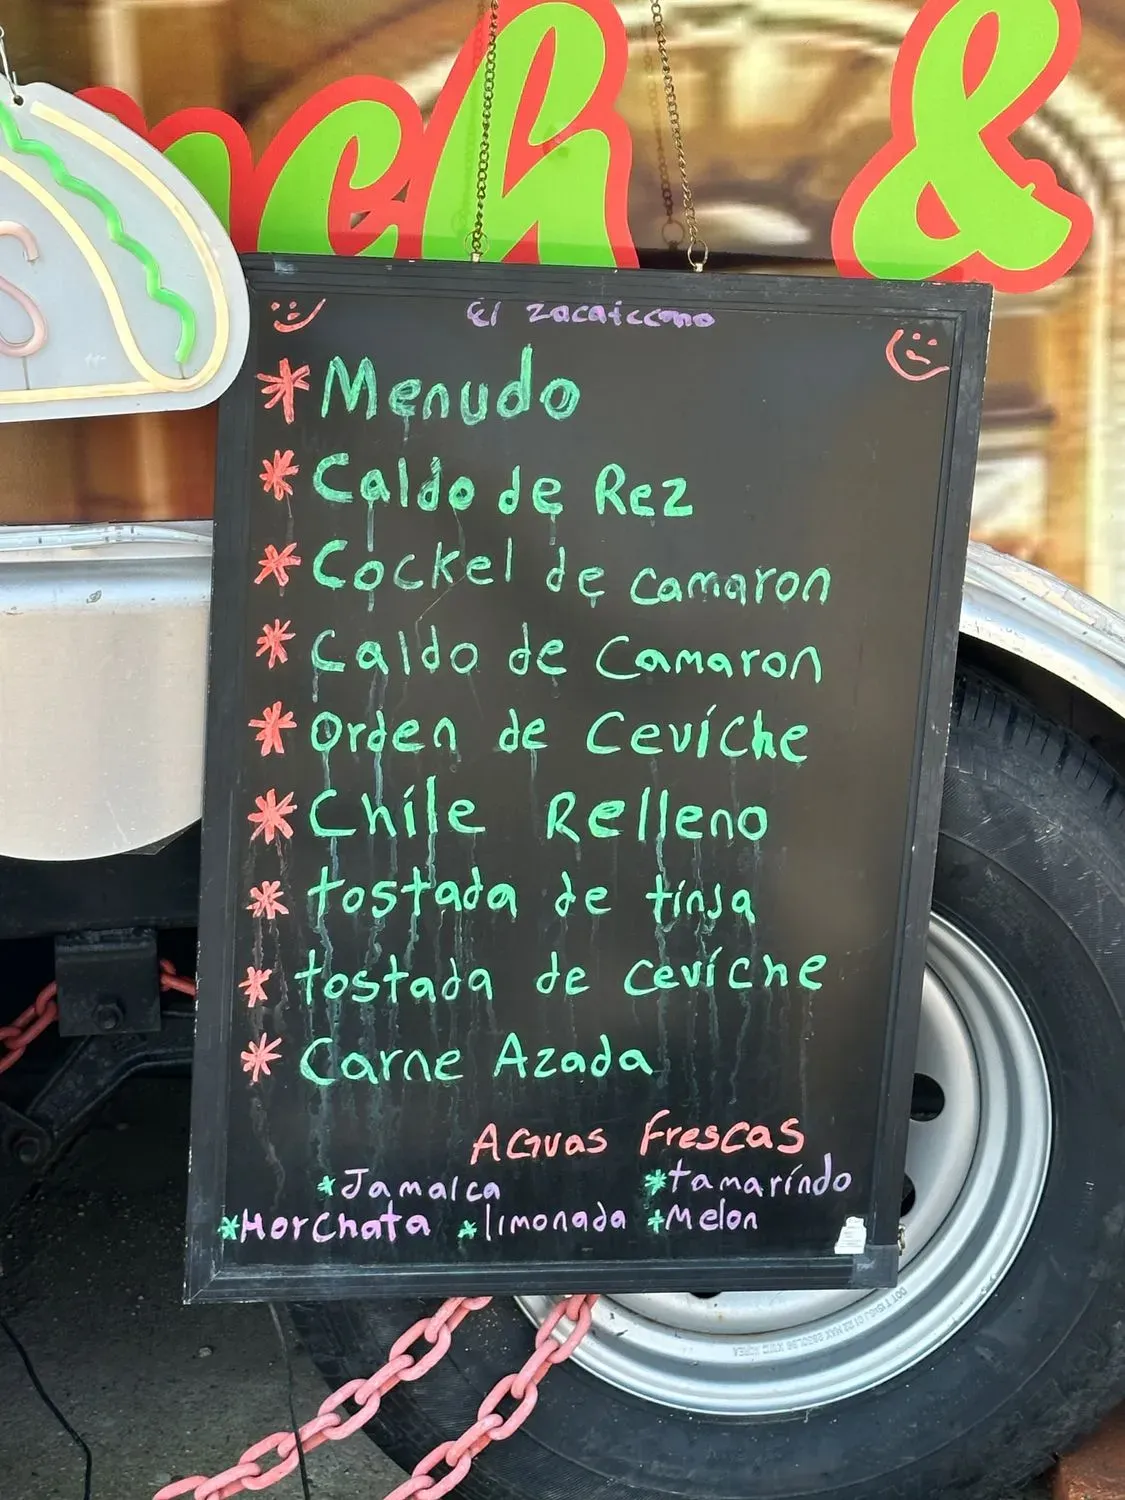 ch &
El zacateccano
* Menudo
* Caldo de Rez
* Cockel de camaron
* Caldo de Camaron
* Orden de Ceviche
* Chile Relleno
* tostada de tinja
* tostada de ceviche
* Carne Azada
AGuas Frescas
*Jamaica *tamarindo
*HorChata *limonada *Melon